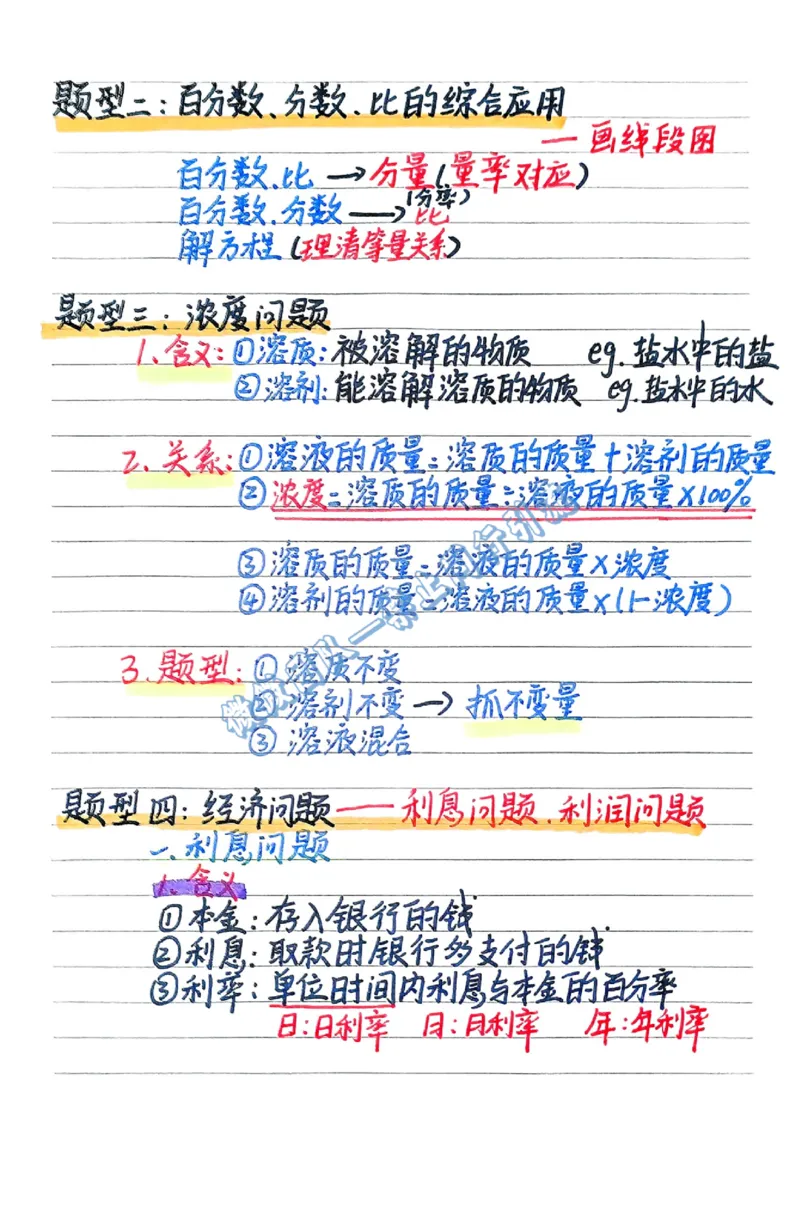 题型二：百分数、分数、比的综合应用
— 画线段图
百分数、比 → 分量(量率对应)
(分率)
百分数、分数 → 比
解方程 (理清等量关系)
题型三：浓度问题
1、含义：①溶质：被溶解的物质 eg. 盐水中的盐
②溶剂：能溶解溶质的物质 eg. 盐水中的水
2、关系：①溶液的质量=溶质的质量+溶剂的质量
②浓度=溶质的质量÷溶液的质量×100%
③溶质的质量=溶液的质量×浓度
④溶剂的质量=溶液的质量×(1-浓度)
3.题型：①溶质不变
②溶剂不变 → 抓不变量
③溶液混合
题型四：经济问题——利息问题、利润问题
一、利息问题
1、含义
①本金：存入银行的钱
②利息：取款时银行多支付的钱
③利率：单位时间内利息与本金的百分率
日：日利率 月：月利率 年：年利率